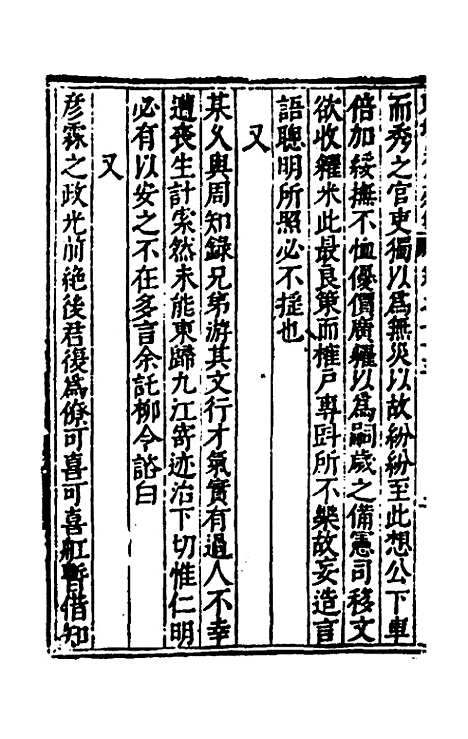 而秀之官吏獨以爲無災以故紛紛至此想公下車
倍加綏撫不恤優價廣糴以爲嗣歲之備憲司移文
欲收糴米此最良策而榷戶專斟所不樂故妄造言
語聰明所照必不搖也
又
某久與周知錄兄弟游其文行才氣實有過人不幸
遭喪生計索然未能東歸九江寄迹治下切惟仁明
必有以安之不在多言余託柳令諮白
又
彥霖之政光前絶後君復爲僚可喜可喜舡暫借知